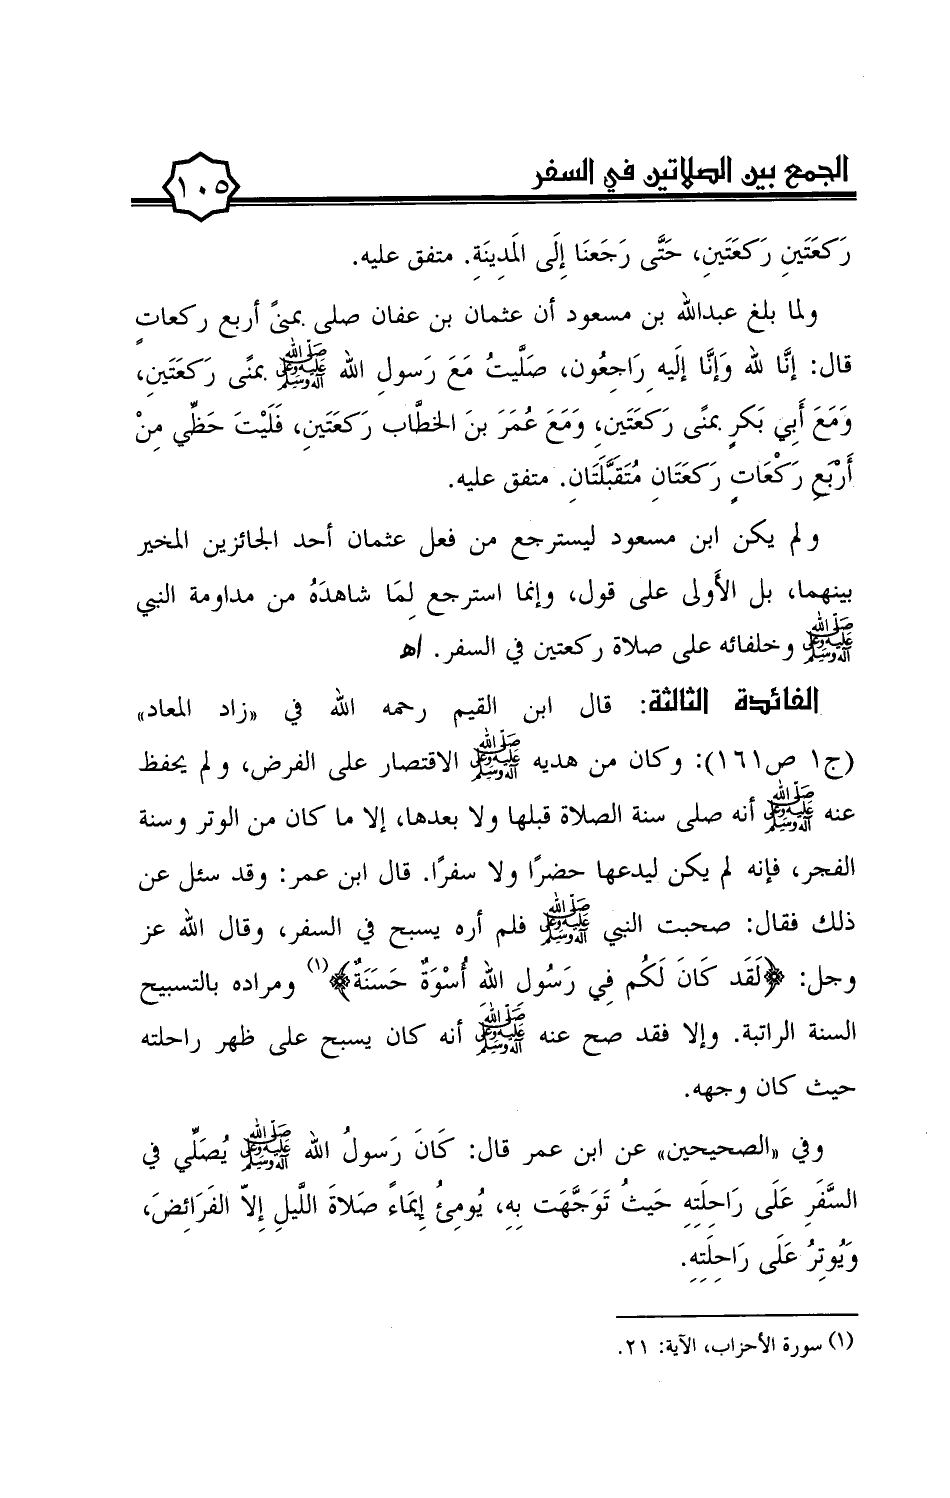 الجمع بين الصلاتين في السفر
١٠٥
رَكعَتَينِ رَكعَتَينِ، حَتَّى رَجَعنَا إِلَى المَدِينَةِ. متفق عليه.
ولما بلغ عبدالله بن مسعود أن عثمان بن عفان صلى بمنىً أربع ركعاتٍ
قال: إنَّا لله وَإنَّا إلَيهِ رَاجِعُون، صَلَّيتُ مَعَ رَسولِ الله ﷺ بمنًى رَكعَتَينِ،
وَمَعَ أَبِي بَكرٍ بمنًى رَكعَتَينِ، وَمَعَ عُمَرَ بنَ الخطَّاب رَكعَتَينِ، فَلَيْتَ حَظِّي مِنْ
أَرْبَعِ رَكْعَاتٍ رَكعَتَانِ مُتَقَبَّلَتَانِ. متفق عليه.
ولم يكن ابن مسعود ليسترجع من فعل عثمان أحد الجائزين المخير
بينهما، بل الأَولى على قول، وإنما استرجع لِمَا شاهدَهُ من مداومة النبي
ﷺ وخلفائه على صلاة ركعتين في السفر. اهـ
الفائدة الثالثة: قال ابن القيم رحمه الله في «زاد المعاد»
(ج١ ص١٦١): وكان من هديه ﷺ الاقتصار على الفرض، ولم يحفظ
عنه ﷺ أنه صلى سنة الصلاة قبلها ولا بعدها، إلا ما كان من الوتر وسنة
الفجر، فإنه لم يكن ليدعها حضرًا ولا سفرًا. قال ابن عمر: وقد سئل عن
ذلك فقال: صحبت النبي ﷺ فلم أره يسبح في السفر، وقال الله عز
وجل: ﴿لَقَد كَانَ لَكُم فِي رَسُول الله أُسْوَةٌ حَسَنَةٌ﴾(١) ومراده بالتسبيح
السنة الراتبة. وإلا فقد صح عنه ﷺ أنه كان يسبح على ظهر راحلته
حيث كان وجهه.
وفي «الصحيحين» عن ابن عمر قال: كَانَ رَسولُ الله ﷺ يُصَلِّي في
السَّفَرِ عَلَى رَاحِلَتِهِ حَيثُ تَوَجَّهَت بِهِ، يُومِئُ إِيمَاءً صَلاةَ اللَّيلِ إلاّ الفَرَائِضَ،
وَيُوتِرُ عَلَى رَاحِلَتِهِ.
(١) سورة الأحزاب، الآية: ٢١.